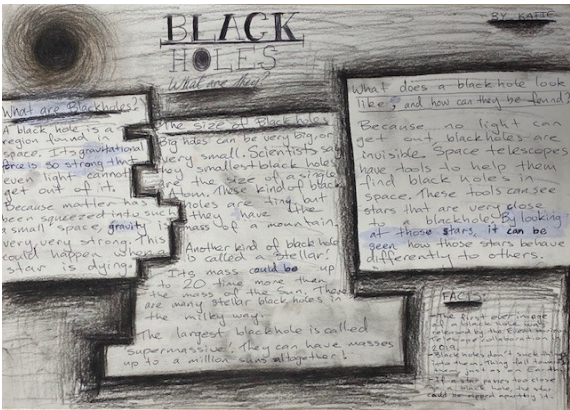 BLACK
HOLES
What are they?
BY KATIE
What are Blackholes?
A black hole is a
region found in
space. Its gravitational
force is so strong that
even light cannot
get out of it.
Because matter has
been squeezed into such
a small space, gravity is
very very strong. This
could happen when a
star is dying.
The size of Black holes
Big holes can be very big, or
very small. Scientists say
the smallest black holes
are the size of a single
atom. These kind of black
holes are tiny but
they have the
mass of a mountain.
Another kind of black hole
is called a 'stellar'.
Its mass could be up
to 20 time more than
the mass of the sun. There
are many stellar black holes in
the milky way.
The largest blackhole is called
supermassive. They can have masses
up to a million suns altogether!
What does a black hole look
like, and how can they be found?
Because no light can
get out, blackholes are
invisible. Space telescopes
have tools to help them
find black holes in
space. These tools can see
stars that are very close
to a blackhole. By looking
at those stars, it can be
seen how those stars behave
differently to others.
FACT
- The first ever image
of a black hole was
captured by the Event Horizon
Telescope collaboration
2019.
- Blackholes don't suck things
in. Things fall into
them just as on Earth
- If a star passes too close
to a black hole, the star
could be ripped apart